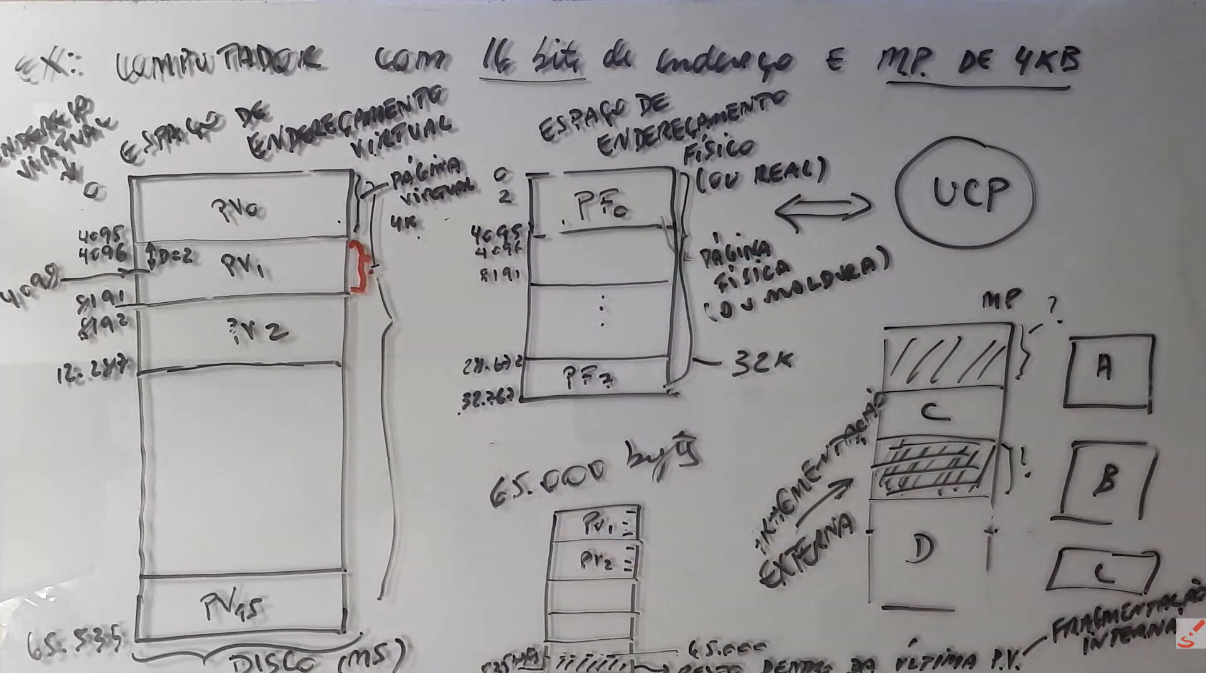 EX: COMPUTADOR COM 16 bits de endereço E MP. DE 4KB
ENDEREÇO
VIRTUAL
ESPAÇO DE
ENDEREÇAMENTO
VIRTUAL
0
PV0
4095
4096
D=2
4098
PV1
8191
8192
PV2
12.287
PV15
65.535
DISCO (MS)
PÁGINA
VIRTUAL
4K
ESPAÇO DE
ENDEREÇAMENTO
FÍSICO
(OU REAL)
0
2
PF0
4095
4096
8191
28.672
PF7
32.767
PÁGINA
FÍSICA
(OU MOLDURA)
32K
UCP
65.000 bytes
PV1
PV2
65.000
RESTO DENTRO DA ÚLTIMA P.V.
FRAGMENTAÇÃO
INTERNA
MP
?
C
?
D
FRAGMENTAÇÃO
EXTERNA
A
B
C
S